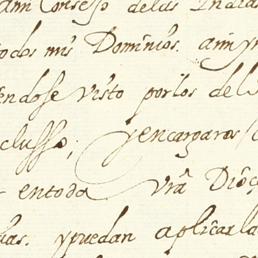 ami Consejo delas Indias
todos mis Dominios. assi y
endose visto por los del
clusso; y encargaros
en toda Vrã Dióc
ias. y puedan aplicar la